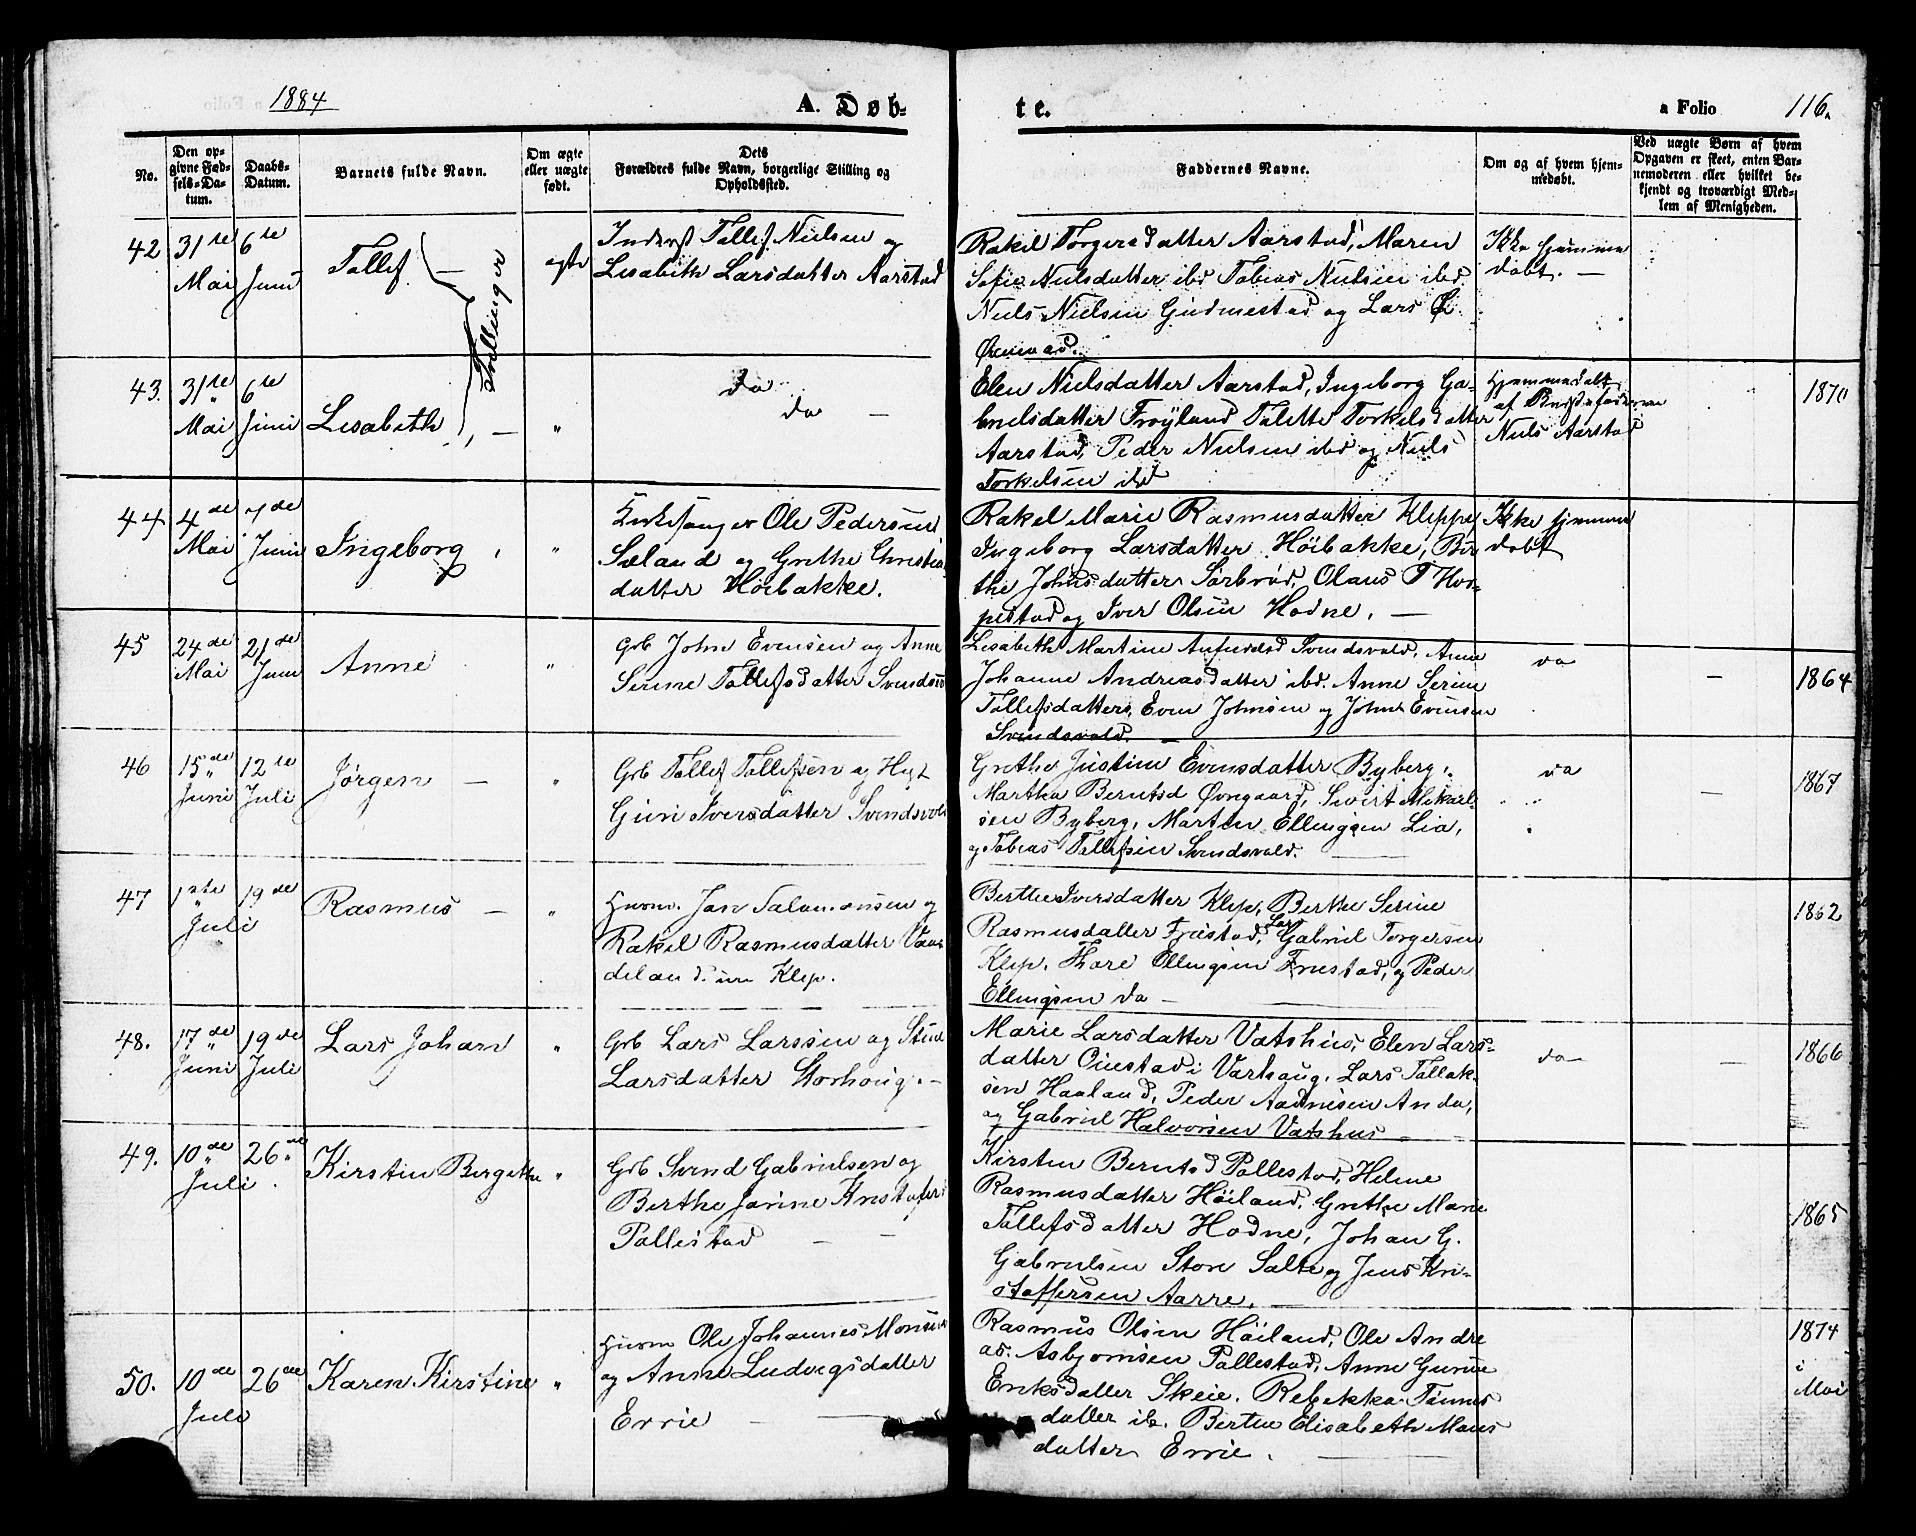 1884
A. Døb-
te.
a Folio 116.
No.
Den op-
givne Fød-
sels-Da-
tum.
Daabs-
Datum.
Barnets fulde Navn.
Om ægte
eller uægte
født.
Dets
Forældres fulde Navn, borgerlige Stilling og
Opholdssted.
Faddernes Navne.
Om og af hvem hjem-
medøbt.
Ved uægte Børn af hvem
Opgaven er skeet, enten Bar-
nemoderen eller hvilket be-
kjendt og troværdigt Med-
lem af Menigheden.
42 31te Mai 6te Juni
Tollef
Tvillinger
ægte
Inderst Tollef Nielsen og
Lisabeth Larsdatter Aarstad
Rakel Torgersdatter Aarstad, Maren
Sofie Nielsdatter ibd Tobias Nielsen ibd
Niels Nielsen Gudmestad og Lars
Ikke hjemme
døbt. —
43. 31te Mai 6te Juni
Lisabeth
"
do
do —
Elen Nielsdatter Aarstad, Ingeborg Ga-
brielsdatter Frøyland Talette Torkelsdatter
Aarstad, Peder Nielsen ibd og Niels
Torkelsen ibd
Hjemmedøbt
af
Niels Aarstad
1870
44 4de Mai Juni
Ingeborg
"
Kirkesanger Ole Pedersen
Sæland og Grethe Christian
datter Höibakke.
Rakel Marie Rasmusdatter Kleppe
Ingeborg Larsdatter Höibakke, Bir-
the Johnsdatter Sørbrød, Olaus T Hor-
pestad og Iver Olsen Hodne. —
Ikke hjemme
døbt
45 24de Mai 21de Juni
Anne
"
Grb John Evensen og Anne
Serine Tollefsdatter Svendsvo
Lisabeth Martine Svendsvold, Anne
Johanne Andreasdatter ibd. Anne Serine
Tollefsdatter, Even Johnsen og John Evensen
Svendsvold. —
do
—
1864
46 15de Juni 12te Juli
Jørgen —
"
Grb Tollef Tollefsen og
Guri Iversdatter Svendsvold
Grethe Justine Evensdatter Byberg,
Martha Berntsd Øvregaard, Sivert Mikael-
sen Byberg, Martin Ellingsen Lia,
og Tobias Tollefsen Svendsvold.
do
—
1867
47 1ste Juli 19de
Rasmus —
"
Huusm. Jan Salamonsen og
Rakel Rasmusdatter
deland. Klep.
Berthe Iversdatter Klep, Berthe Serine
Rasmusdatter Friestad, Lars Gabriel Torgersen
Klep. Thore Ellingsen Friestad, og Peder
Ellingsen do —
1862
48. 17de Juni 19de Juli
Lars Johan
"
Grb Lars Larssen og Stine
Larsdatter Storhoug. —
Marie Larsdatter Vatshus, Elen Lars-
datter Øiestad i Varhaug. Lars Tollak-
sen Haaland, Peder Aadnesen Anda,
og Gabriel Halvorsen Vatshus —
do —
—
1866
49. 10de Juli 26de
Kirstin Bergithe
"
Grb Svend Gabrielsen og
Berthe Jorine Kristofers
Pollestad — —
Kirsten Berntsd Pollestad, Helene
Rasmusdatter Höiland, Grethe Marie
Tollefsdatter Hodne, Johan G.
Gabrielsen Store Salte og Jens Kri-
stoffersen Aarre. —
1865
50. 10de Juli 26de
Karen Kirstine
"
Huusm Ole Johannes Monsen
og Anne Ludvigsdatter
Errie —
Rasmus Olsen Höiland, Ole Andre
as. Asbjørnsen Pollestad, Anne Gurine
Eriksdatter Skeie. Rebekka Tønnes
datter ib. Berthe Elisabeth Mons
datter Errie. —
1874
i
Mai